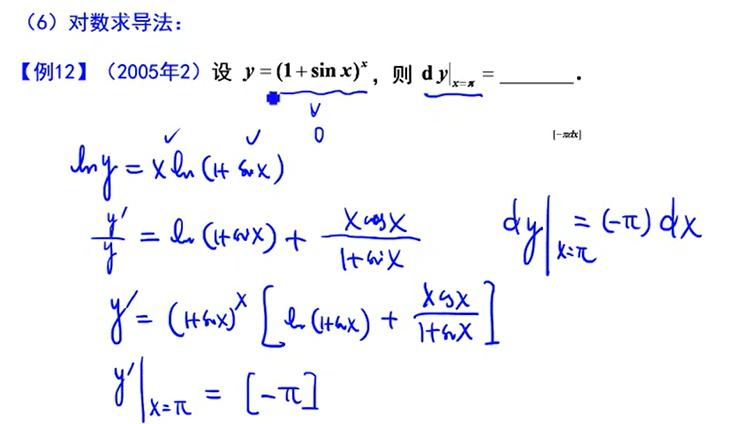 （6）对数求导法：
【例12】（2005年2）设 y = (1 + sin x)^x，则 dy|_{x=π} = ________.
V
0
[-πdx]
ln y = x ln (1+ sin x)
y'/y = ln (1+sin x) + x cos x / 1+ sin x
dy|_{x=π} = (-π) dx
y' = (1+sin x)^x [ ln (1+sin x) + x cos x / 1+sin x ]
y'|_{x=π} = [-π]